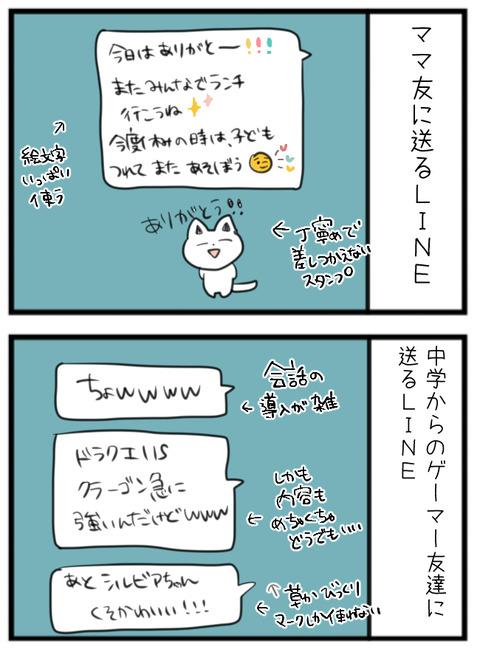 ママ友に送るLINE
今日はありがとー!!!
またみんなでランチ
行こうね
今度休みの時は、子ども
つれて またあそぼう
↗
絵文字
いっぱい
使う
ありがとう!!
← 丁寧めで
差しつかえない
スタンプ
中学からのゲーマー友達に
送るLINE
ちょwwww
会話の
← 導入が雑
ドラクエ11S
クラーゴン急に
強いんだけどwww
しかも
内容も
めちゃくちゃ
← どうでもいい
あと シルビアちゃん
くそかわいい!!!
↑ 草か びっくり
← マークしか使わない